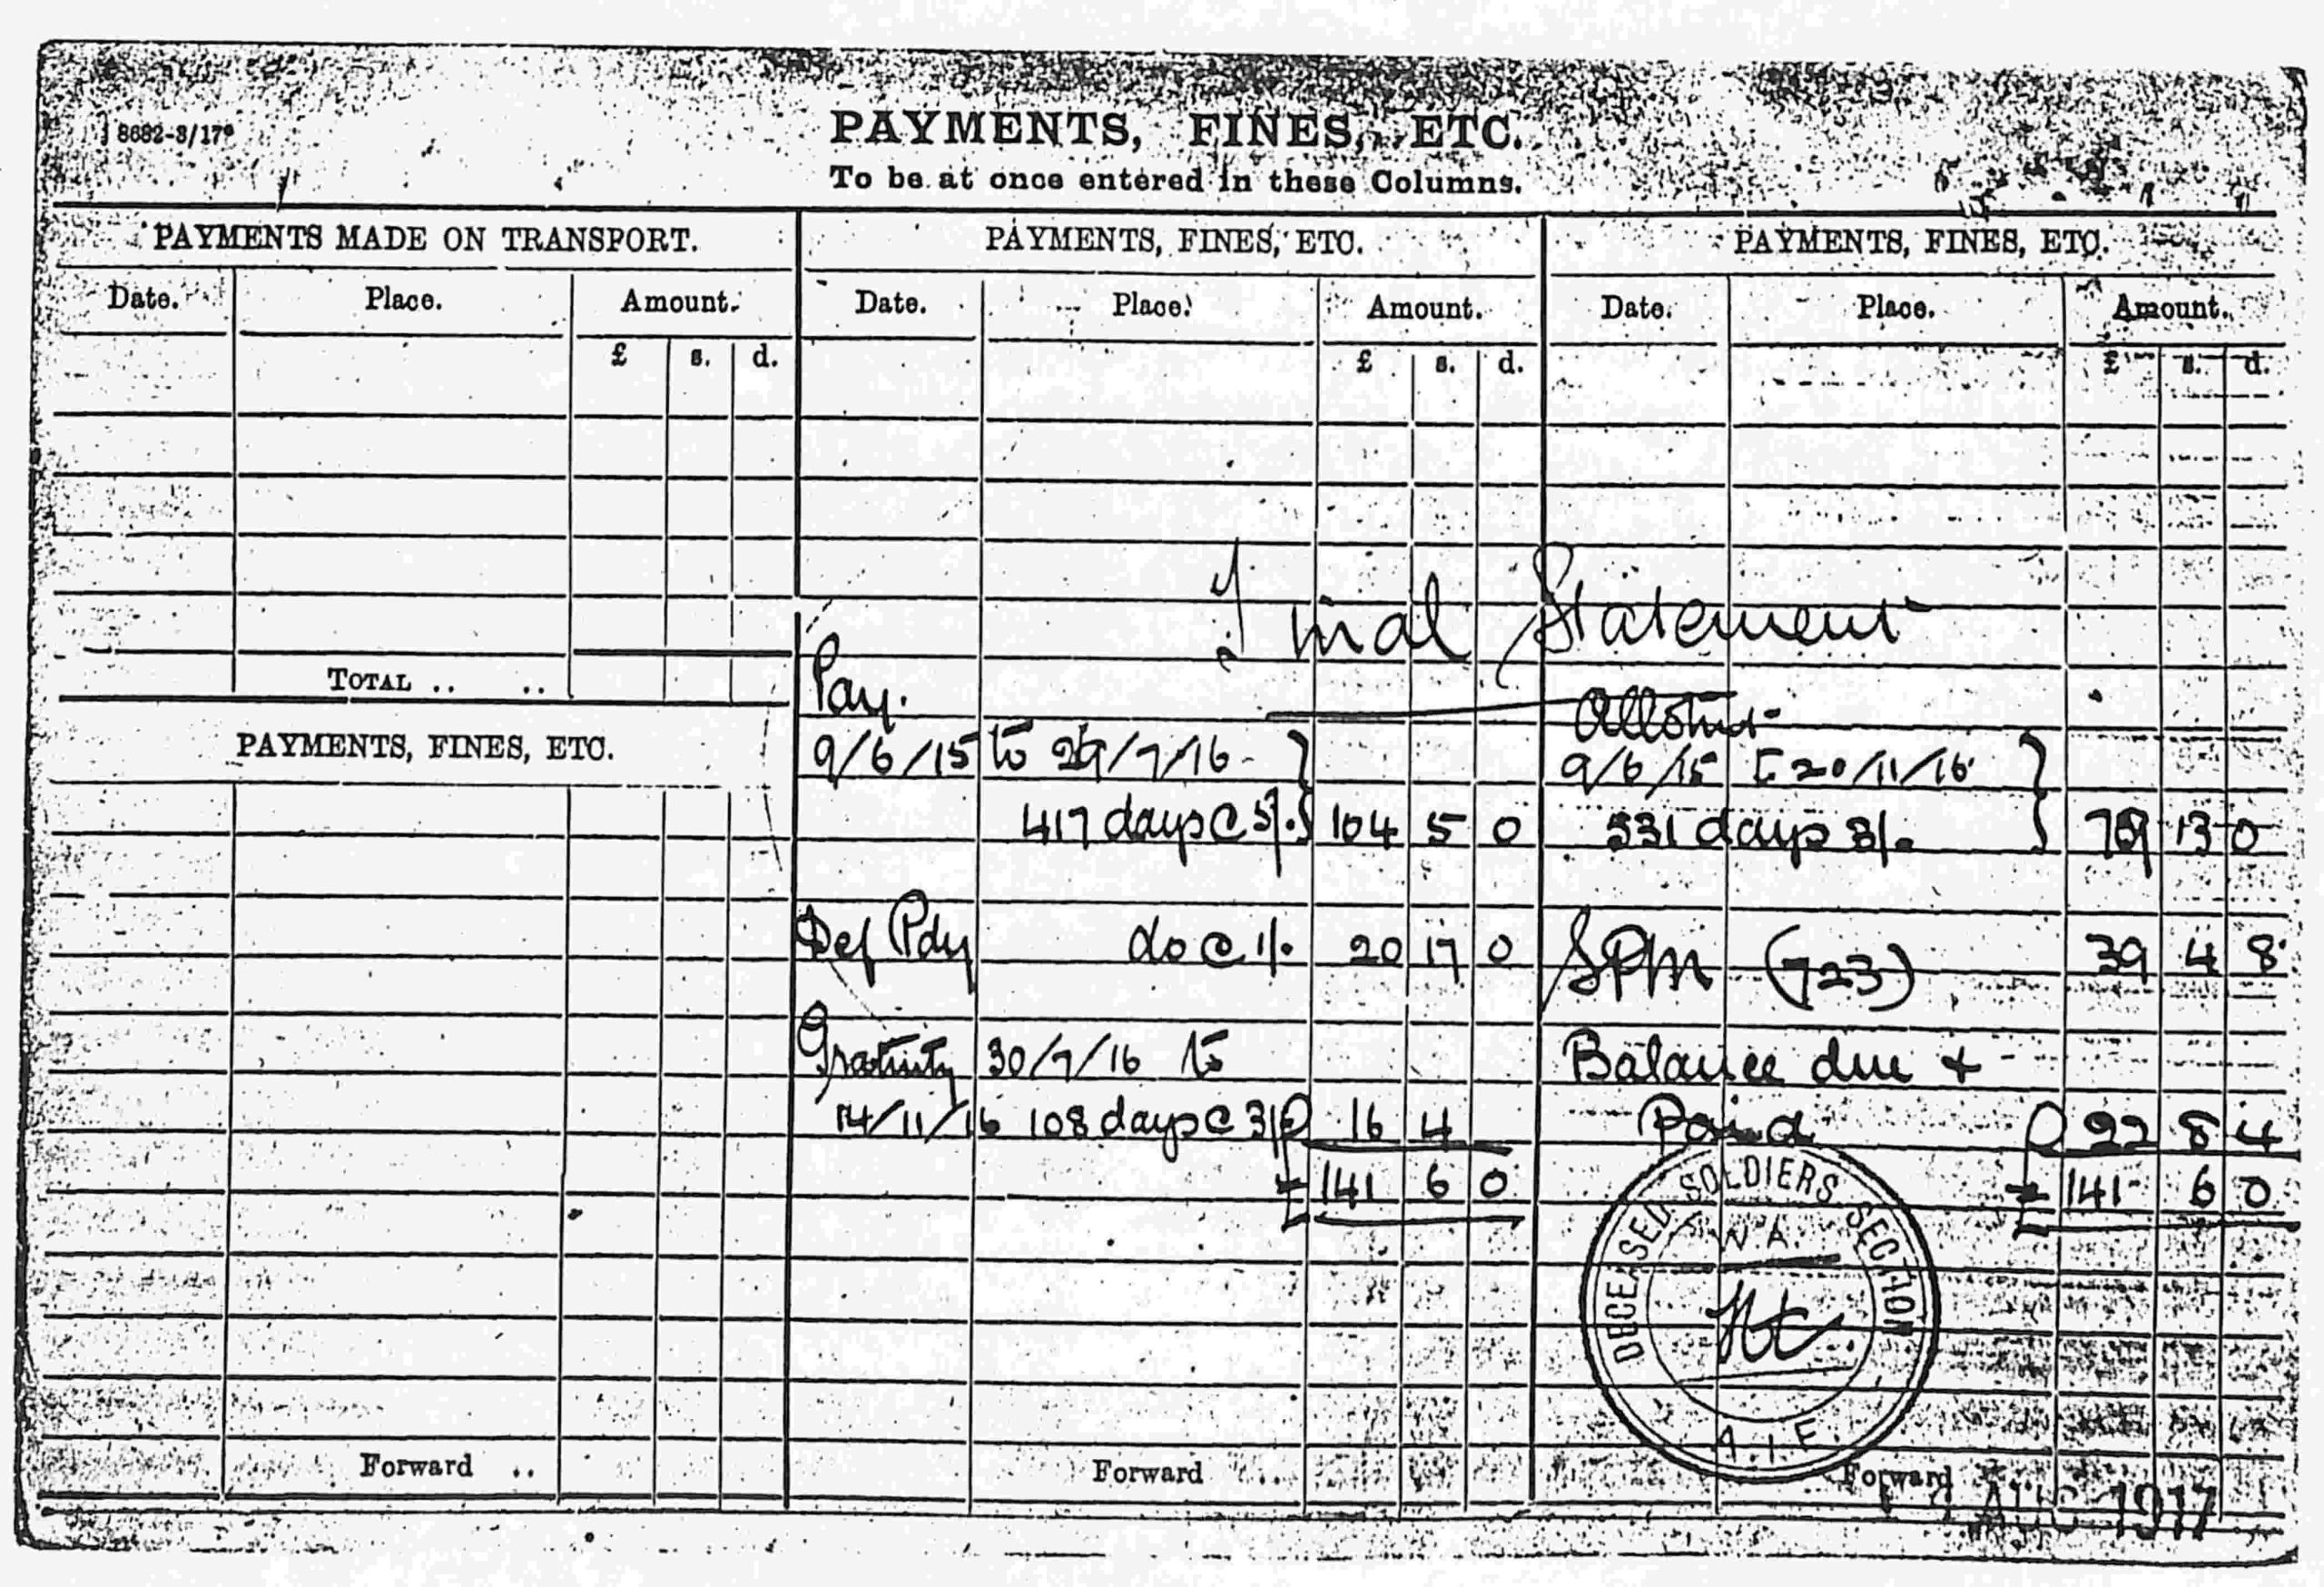 8682-3/17
PAYMENTS, FINES, ETC.
To be at once entered in these Columns.
PAYMENTS MADE ON TRANSPORT.
Date. Place. Amount.
£ s. d.
TOTAL .. ..
PAYMENTS, FINES, ETC.
Forward ..
PAYMENTS, FINES, ETC.
Date. Place. Amount.
£ s. d.
Final Statement
Pay.
9/6/15 to 29/7/16
417 days @ 5/. 104 5 0
Def Pay do @ 1/. 20 17 0
Gratuity 30/7/16 to
14/11/16 108 days @ 3/ 16 4
£ 141 6 0
Forward ..
PAYMENTS, FINES, ETC.
Date. Place. Amount.
£ s. d.
Allotmt
9/6/15 to 20/11/16
531 days 3/. 79 13 0
SPM (723) 39 4 8
Balance due +
Paid 22 8 4
£ 141 6 0
DECEASED SOLDIERS SECTION
W.A.
A.I.F.
Forward
AUG 1917